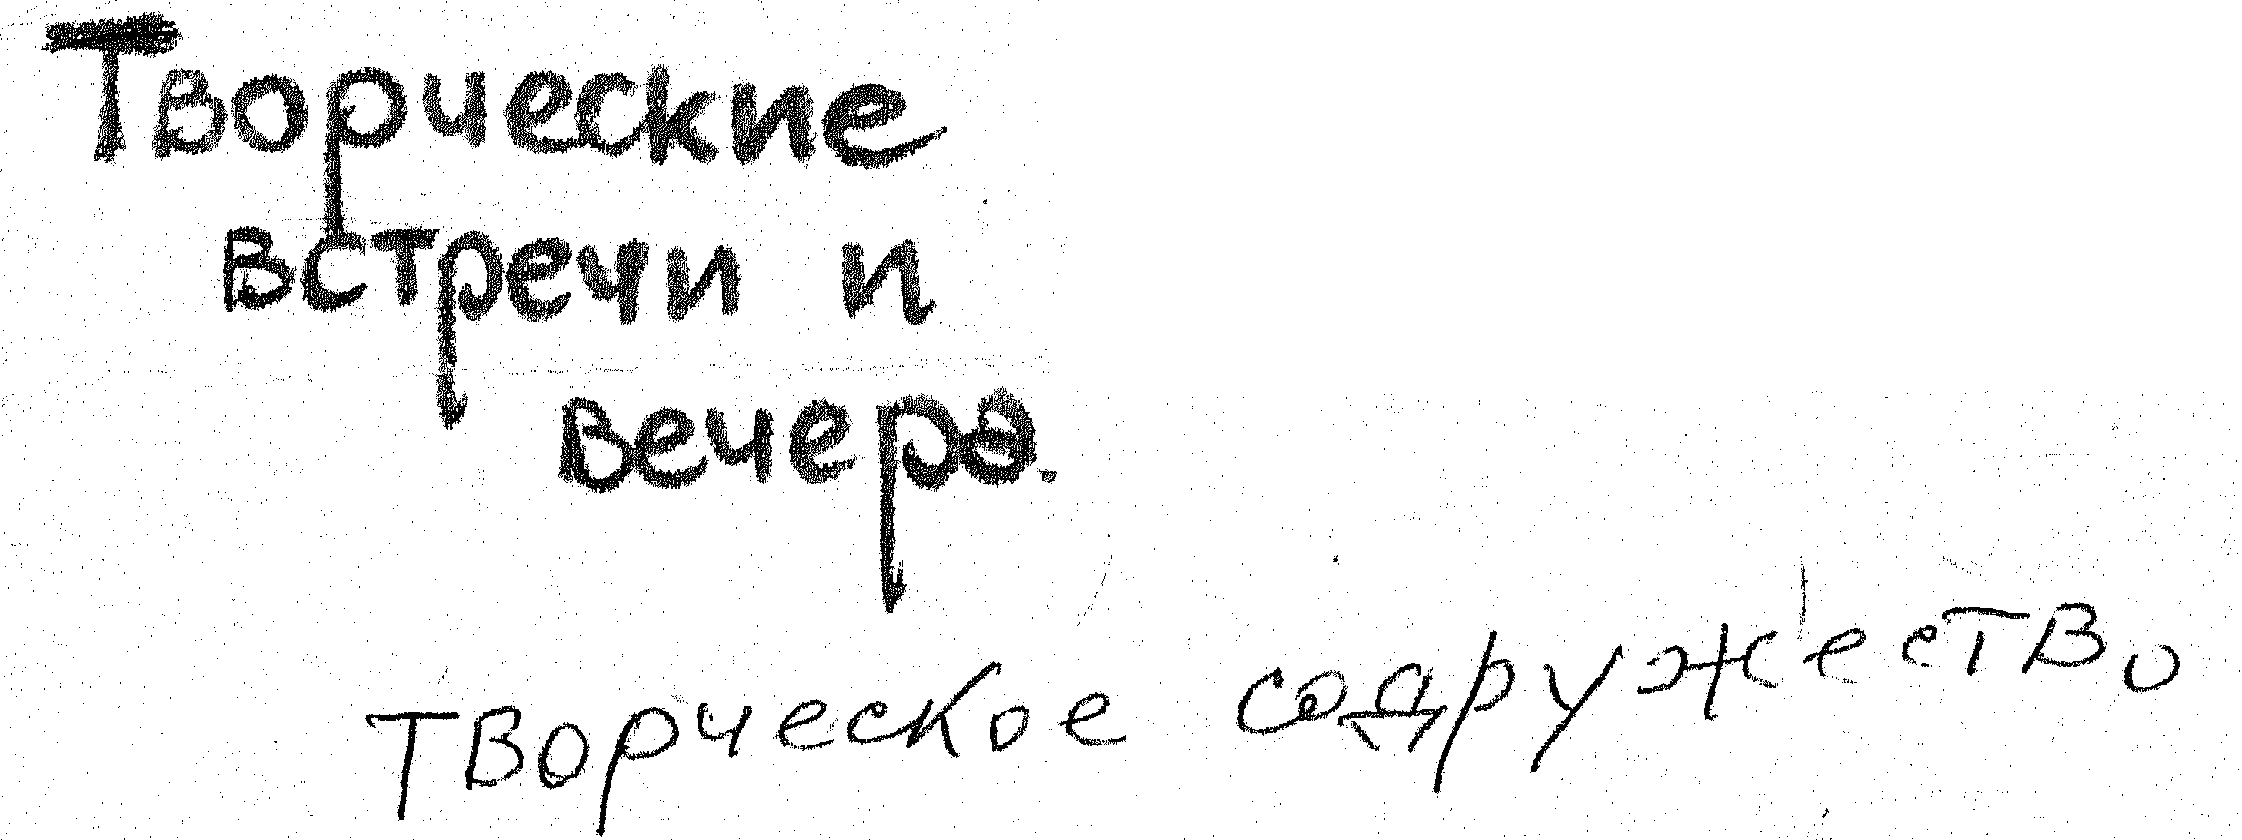 Творческие
встречи и
вечера.
Творческое содружество